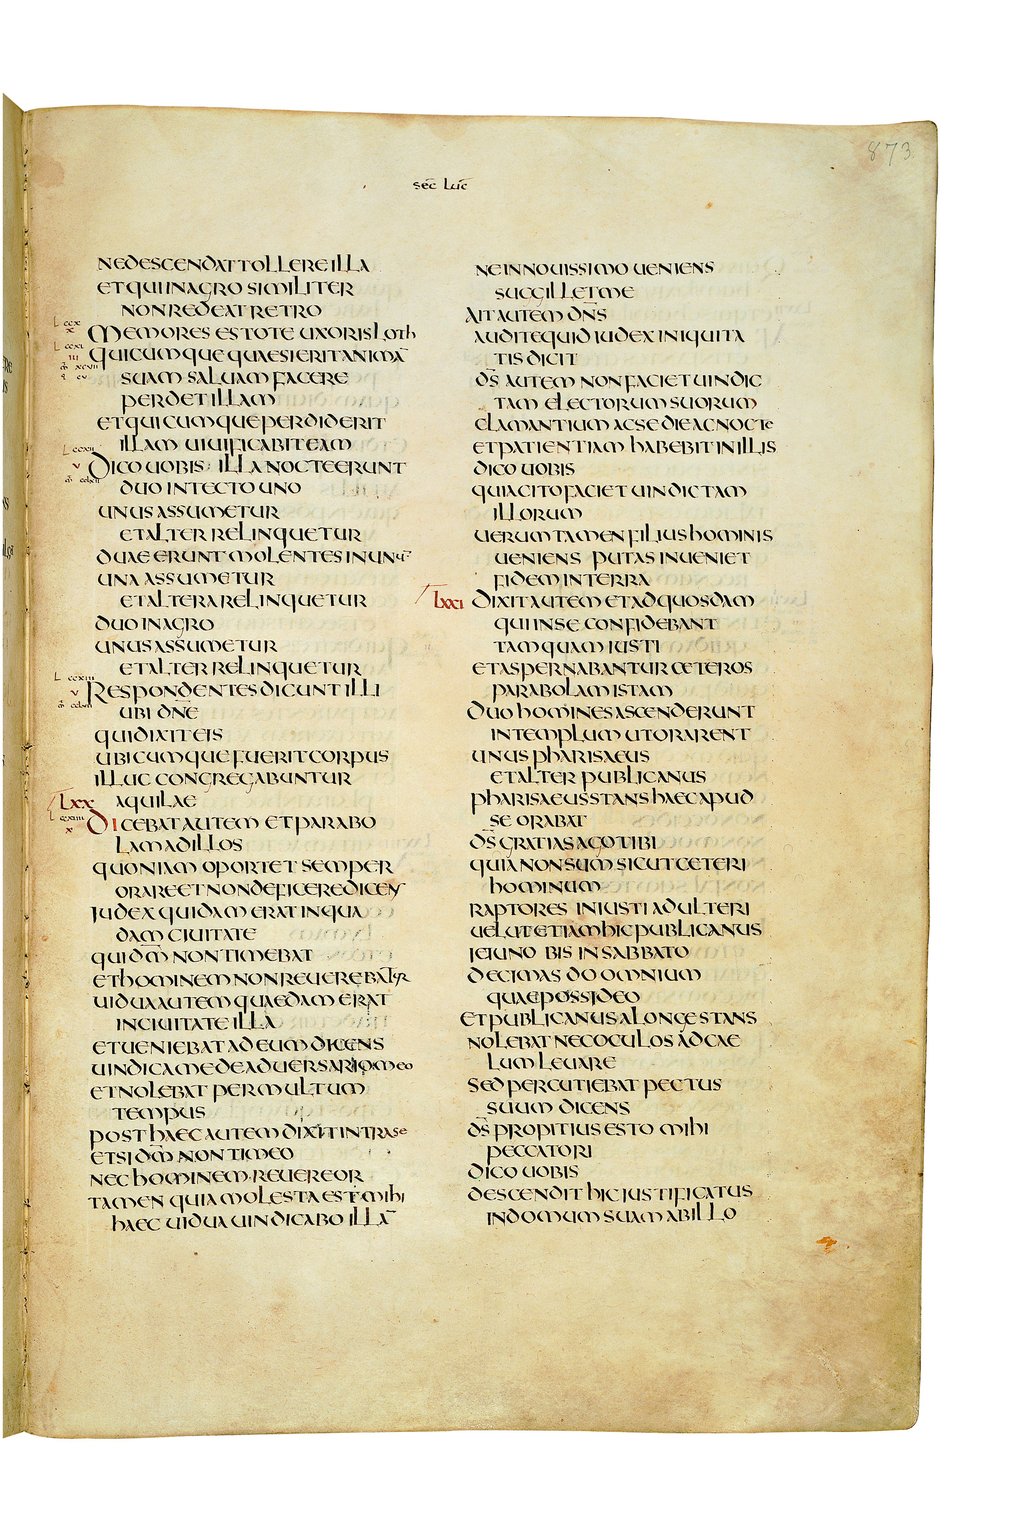 873
sec̄ Luc̄
NE DESCENDAT TOLLERE ILLA
ET QUI IN AGRO SIMILITER
NON REDEAT RETRO
L CCX
X
MEMORES ESTOTE UXORIS LOTH
L CCXI
III
QUICUMQUE QUAESIERIT ANIMĀ
SUAM SALUAM FACERE
PERDET ILLAM
ET QUICUMQUE PERDIDERIT
ILLAM UIUIFICABIT EAM
L CCXII
V
DICO UOBIS ILLA NOCTE ERUNT
DUO IN TECTO UNO
UNUS ASSUMETUR
ET ALTER RELINQUETUR
DUAE ERUNT MOLENTES IN UNŪ
UNA ASSUMETUR
ET ALTERA RELINQUETUR
DUO IN AGRO
UNUS ASSUMETUR
ET ALTER RELINQUETUR
L CCXIII
V
RESPONDENTES DICUNT ILLI
UBI DN̄E
QUI DIXIT EIS
UBICUMQUE FUERIT CORPUS
ILLUC CONGREGABUNTUR
LXX AQUILAE
L CCXIIII
X
DICEBAT AUTEM ET PARABO
LAM AD ILLOS
QUONIAM OPORTET SEMPER
ORARE ET NON DEFICERE DICENS
IUDEX QUIDAM ERAT IN QUA
DAM CIUITATE
QUI DM̄ NON TIMEBAT
ET HOMINEM NON REUEREBATUR
UIDUA AUTEM QUAEDAM ERAT
IN CIUITATE ILLA
ET UENIEBAT AD EUM DICENS
UINDICA ME DE ADUERSARIO MEO
ET NOLEBAT PER MULTUM
TEMPUS
POST HAEC AUTEM DIXIT INTRA SE
ETSI DM̄ NON TIMEO
NEC HOMINEM REUEREOR
TAMEN QUIA MOLESTA EST MIHI
HAEC UIDUA UINDICABO ILLĀ
NE IN NOUISSIMO UENIENS
SUGGILLET ME
AIT AUTEM DN̄S
AUDITE QUID IUDEX INIQUITA
TIS DICIT
DS̄ AUTEM NON FACIET UINDIC
TAM ELECTORUM SUORUM
CLAMANTIUM AC SE DIE AC NOCTE
ET PATIENTIAM HABEBIT IN ILLIS
DICO UOBIS
QUIA CITO FACIET UINDICTAM
ILLORUM
UERUM TAMEN FILIUS HOMINIS
UENIENS PUTAS INUENIET
FIDEM IN TERRA
LXXI DIXIT AUTEM ET AD QUOSDAM
QUI IN SE CONFIDEBANT
TAMQUAM IUSTI
ET ASPERNABANTUR CETEROS
PARABOLAM ISTAM
DUO HOMINES ASCENDERUNT
IN TEMPLUM UT ORARENT
UNUS PHARISAEUS
ET ALTER PUBLICANUS
PHARISAEUS STANS HAEC APUD
SE ORABAT
DS̄ GRATIAS AGO TIBI
QUIA NON SUM SICUT CETERI
HOMINUM
RAPTORES INIUSTI ADULTERI
UELUT ETIAM HIC PUBLICANUS
IEIUNO BIS IN SABBATO
DECIMAS DO OMNIUM
QUAE POSSIDEO
ET PUBLICANUS A LONGE STANS
NOLEBAT NEC OCULOS AD CAE
LUM LEUARE
SED PERCUTIEBAT PECTUS
SUUM DICENS
DS̄ PROPITIUS ESTO MIHI
PECCATORI
DICO UOBIS
DESCENDIT HIC IUSTIFICATUS
IN DOMUM SUAM AB ILLO